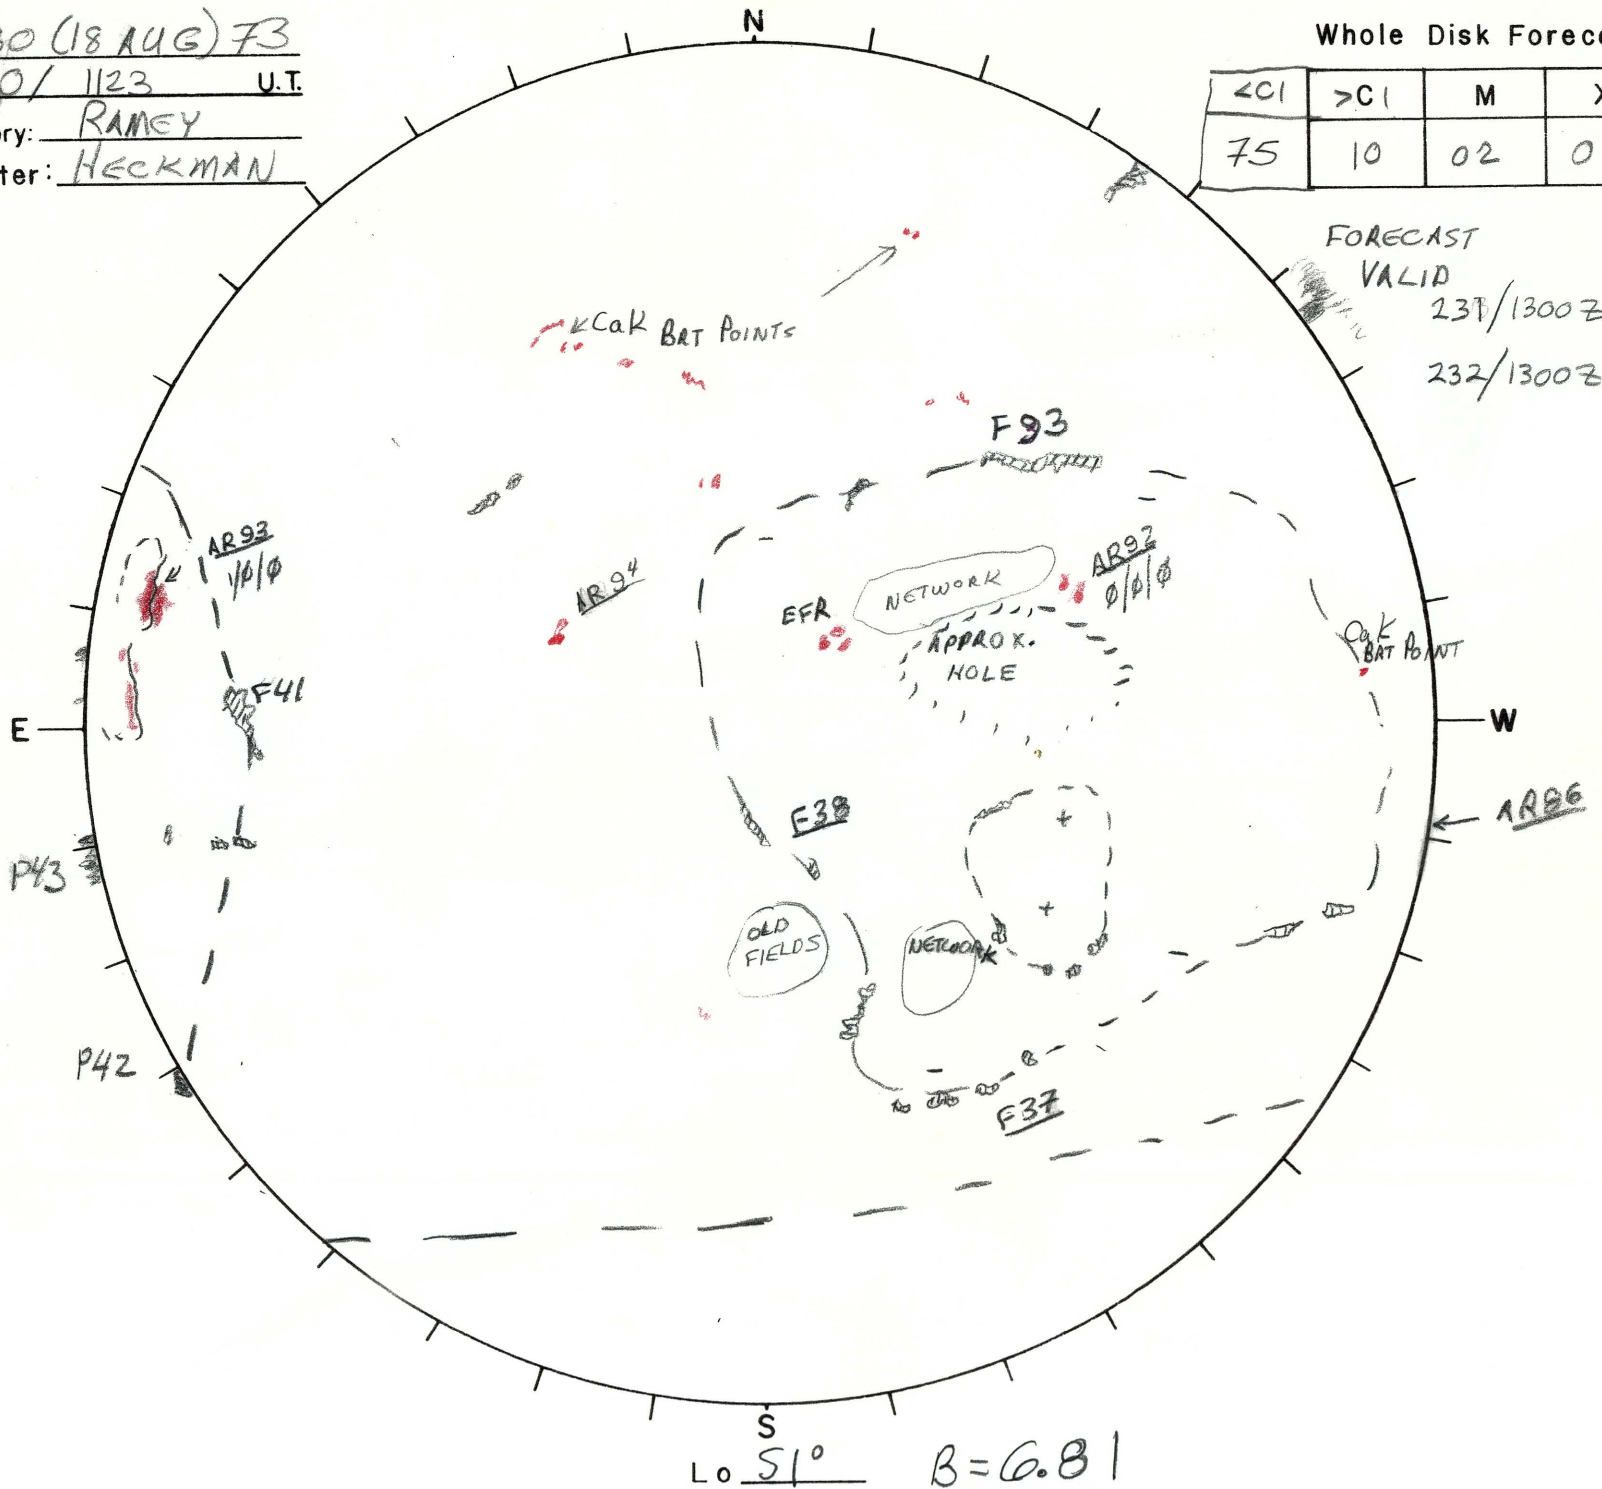 30 (18 AUG) 73
0/ 1123 U.T.
ry: RAMEY
ter: HECKMAN
N
Whole Disk Foreco
<C1 >C1 M
75 10 02 0
FORECAST
VALID
231/1300 Z
232/1300 Z
CaK BRT POINTS
F93
AR93
1/0/0
AR94
NETWORK
AR92
0/0/0
EFR
APPROX.
HOLE
CaK
BRT POINT
F41
E
W
F38
AR86
P43
OLD
FIELDS
NETWORK
P42
F37
S
Lo 51° B=6.81